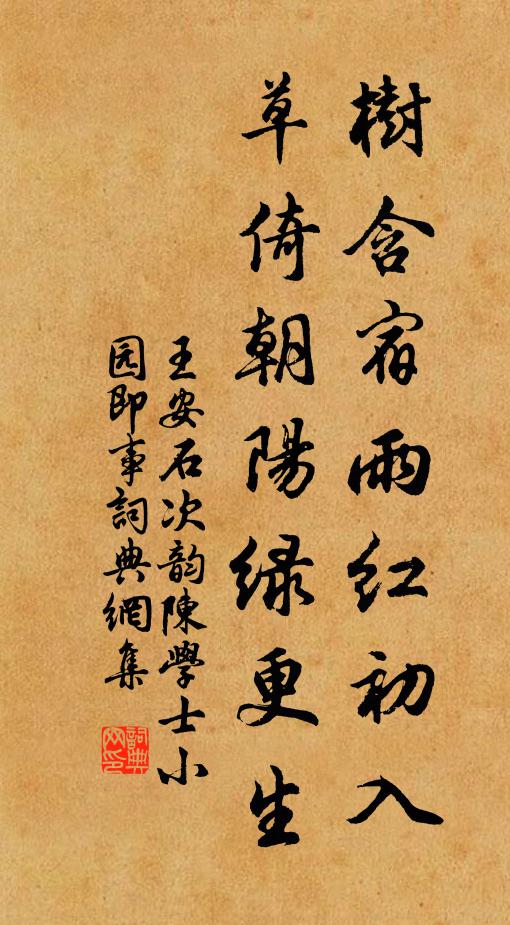 樹含宿雨紅初入
草倚朝陽綠更生
王安石次韵陳學士小
园即事詞典網集
詞典
网印